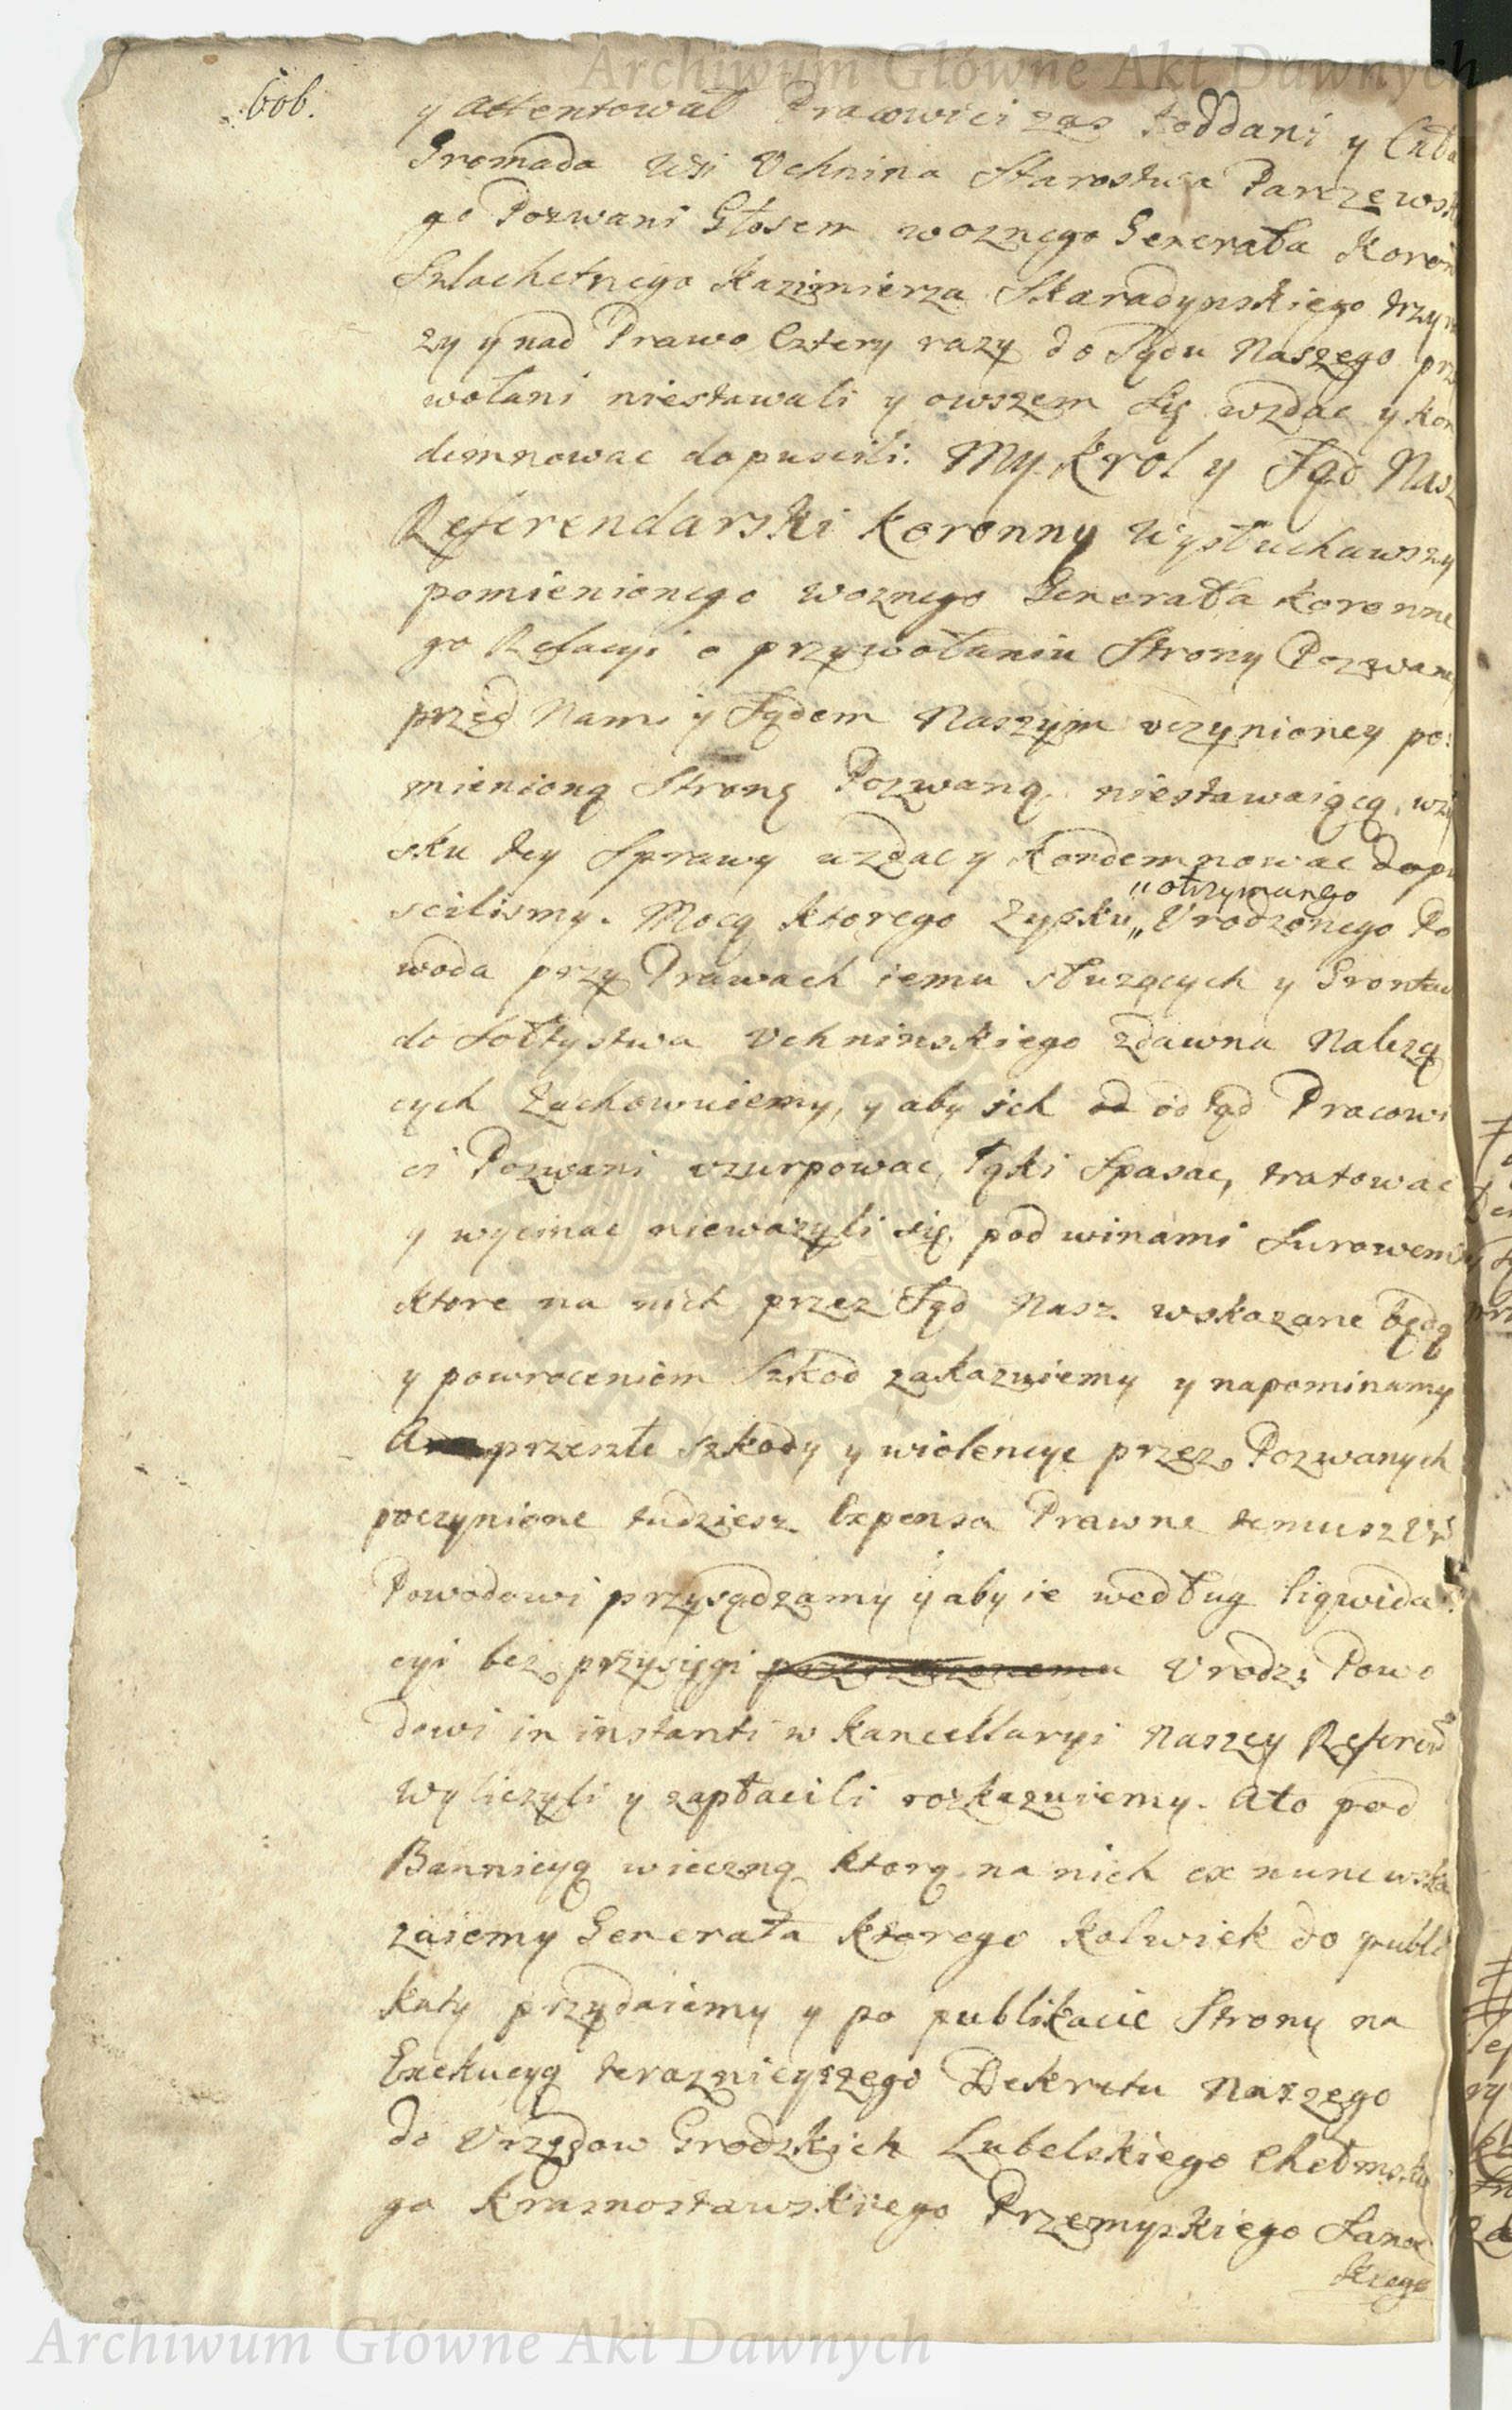 Archiwum Główne Akt Dawnych
606.
y attentował Pracowici zas Poddani y Cała
Gromada Wsi Uchnina Starostwa Parczewsk
go Pozwani Głosem woznego Generała Koron
Szlachetnego Kazimierza Skaradynskiego trzy
zy y nad Prawo Cztery razy do Sądu Naszego prz
wołani niestawali y owszem się wzdac y kon
demnowac dopuscili. My Krol y Sąd Nasz
Referendarski Koronny Wysłuchawszy
pomienionego woznego Generała Koronne
go Relacyi o przywołaniu Strony Pozwaney
przed Nami y Sądem Naszym uczynioney po:
mienioną Stronę Pozwaną niestawaiącą, w zy
sku tey Sprawy wzdac y Kondemnowac dopu
scilismy. Mocą ktorego Zysku „ Urodzonego Po
„otrzymanego
woda przy Prawach iemu słuzących y Grontach
do Sołtystwa Uchninskiego zdawna Nalezą
cych Zachowuiemy, y aby ich od od tąd Pracowi
ci Pozwani uzurpowac, Łąki Spasac, tratowac
y wycinac niewazyli się, pod winami Surowemi
ktore na nich przez Sąd Nasz wskazane będą
y powroceniem Szkod zakazuiemy y napominamy
A przeszłe szkody y wiolencye przez Pozwanych
poczynione tudziesz Expensa Prawne temusz Ur
Powodowi przysądzamy y aby ie według liqwida
cyi bez przysięgi Urodz: Powo
dowi in instanti w Kancellaryi Naszey Referen
wyliczyli y zapłacili rozkazuiemy. A to pod
Bannicyą wieczną ktorą na nich ex nunc wska
zuiemy Generała ktorego kolwiek do publi
katy przydaiemy y po publikacie Strony na
Exekucyą teraznieyszego Dekretu Naszego
do Urzędow Grodzkich Lubelskiego Chełmskie
go Krasnostawskiego Przemyskiego Sanoc
kiego
Archiwum Główne Akt Dawnych